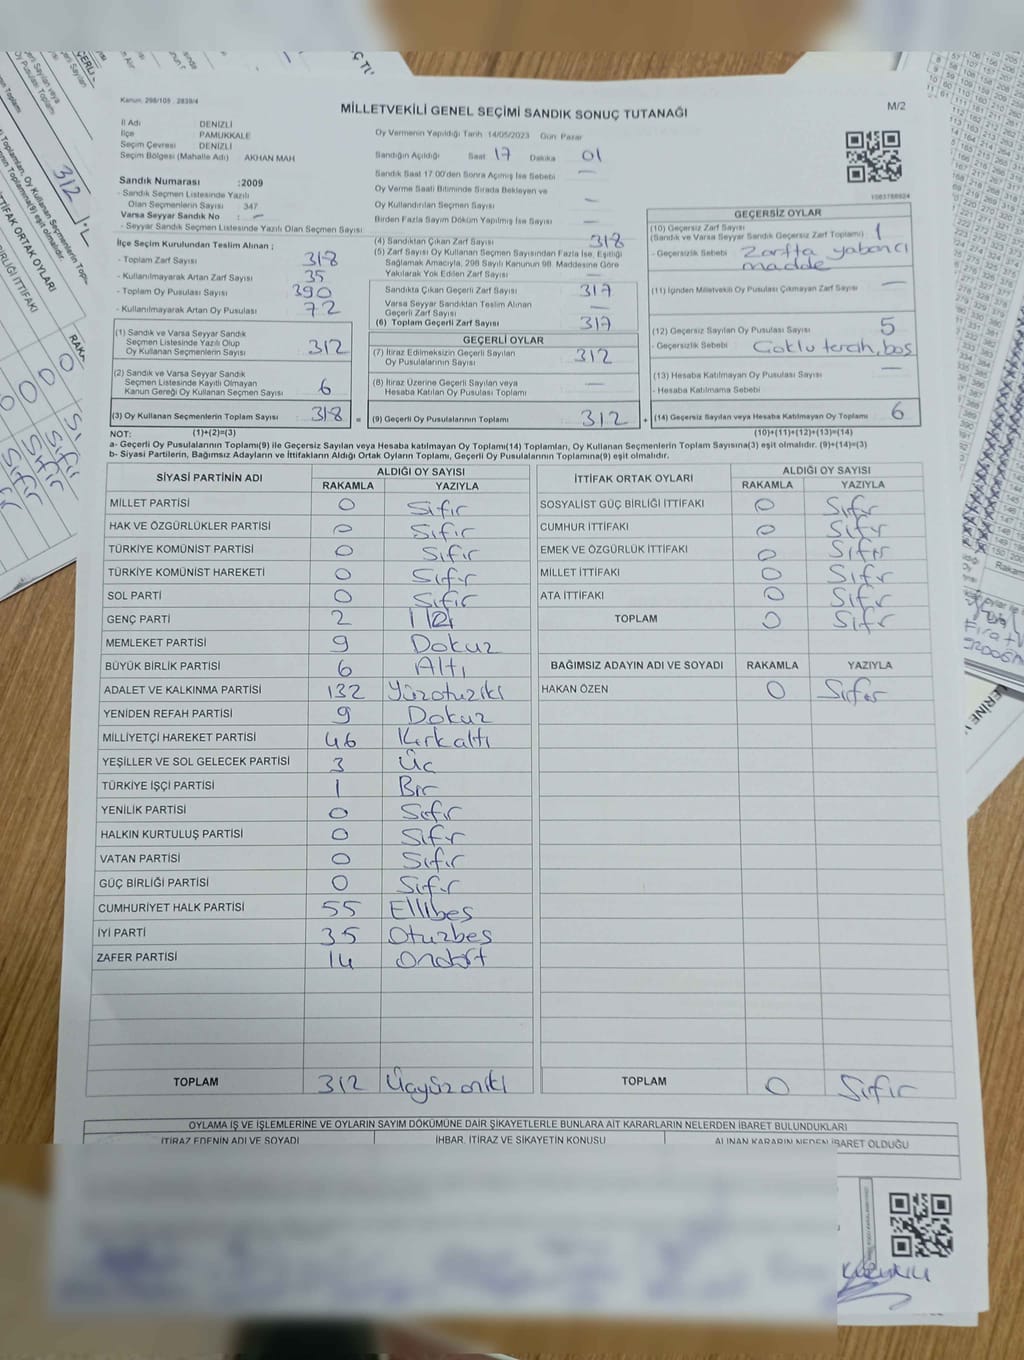 Kanun: 298/105 , 2839/4
MİLLETVEKİLİ GENEL SEÇİMİ SANDIK SONUÇ TUTANAĞI
M/2
İl Adı DENİZLİ
İlçe PAMUKKALE
Seçim Çevresi DENİZLİ
Seçim Bölgesi (Mahalle Adı) AKHAN MAH
Sandık Numarası :2009
- Sandık Seçmen Listesinde Yazılı
Olan Seçmenlerin Sayısı 347
Varsa Seyyar Sandık No : -
- Seyyar Sandık Seçmen Listesinde Yazılı Olan Seçmen Sayısı
Oy Vermenin Yapıldığı Tarih :14/05/2023 Gün: Pazar
Sandığın Açıldığı Saat 17 Dakika 01
Sandık Saat 17.00'den Sonra Açılmış İse Sebebi -
Oy Verme Saati Bitiminde Sırada Bekleyen ve
Oy Kullandırılan Seçmen Sayısı -
Birden Fazla Sayım Döküm Yapılmış İse Sayısı -
İlçe Seçim Kurulundan Teslim Alınan ;
- Toplam Zarf Sayısı 318
- Kullanılmayarak Artan Zarf Sayısı 35
- Toplam Oy Pusulası Sayısı 390
- Kullanılmayarak Artan Oy Pusulası 72
(1) Sandık ve Varsa Seyyar Sandık
Seçmen Listesinde Yazılı Olup
Oy Kullanan Seçmenlerin Sayısı 312
(2) Sandık ve Varsa Seyyar Sandık
Seçmen Listesinde Kayıtlı Olmayan
Kanun Gereği Oy Kullanan Seçmen Sayısı 6
(3) Oy Kullanan Seçmenlerin Toplam Sayısı 318
(4) Sandıktan Çıkan Zarf Sayısı 318
(5) Zarf Sayısı Oy Kullanan Seçmen Sayısından Fazla İse, Eşitliği
Sağlamak Amacıyla, 298 Sayılı Kanunun 98. Maddesine Göre
Yakılarak Yok Edilen Zarf Sayısı -
Sandıkta Çıkan Geçerli Zarf Sayısı 317
Varsa Seyyar Sandıktan Teslim Alınan
Geçerli Zarf Sayısı -
(6) Toplam Geçerli Zarf Sayısı 317
GEÇERLİ OYLAR
(7) İtiraz Edilmeksizin Geçerli Sayılan
Oy Pusulalarının Sayısı 312
(8) İtiraz Üzerine Geçerli Sayılan veya
Hesaba Katılan Oy Pusulası Toplamı -
= (9) Geçerli Oy Pusulalarının Toplamı 312
GEÇERSİZ OYLAR
(10) Geçersiz Zarf Sayısı
(Sandık ve Varsa Seyyar Sandık Geçersiz Zarf Toplamı) 1
- Geçersizlik Sebebi Zarfta yabancı
madde
(11) İçinden Milletvekili Oy Pusulası Çıkmayan Zarf Sayısı -
(12) Geçersiz Sayılan Oy Pusulası Sayısı 5
- Geçersizlik Sebebi Çoklu tercih, boş
(13) Hesaba Katılmayan Oy Pusulası Sayısı -
- Hesaba Katılmama Sebebi
+ (14) Geçersiz Sayılan veya Hesaba Katılmayan Oy Toplamı 6
NOT: (1)+(2)=(3) (10)+(11)+(12)+(13)=(14)
a- Geçerli Oy Pusulalarının Toplamı(9) ile Geçersiz Sayılan veya Hesaba katılmayan Oy Toplamı(14) Toplamları, Oy Kullanan Seçmenlerin Toplam Sayısına(3) eşit olmalıdır. (9)+(14)=(3)
b- Siyasi Partilerin, Bağımsız Adayların ve İttifakların Aldığı Ortak Oyların Toplamı, Geçerli Oy Pusulalarının Toplamına(9) eşit olmalıdır.
SİYASİ PARTİNİN ADI ALDIĞI OY SAYISI
RAKAMLA YAZIYLA
MİLLET PARTİSİ 0 Sıfır
HAK VE ÖZGÜRLÜKLER PARTİSİ 0 Sıfır
TÜRKİYE KOMÜNİST PARTİSİ 0 Sıfır
TÜRKİYE KOMÜNİST HAREKETİ 0 Sıfır
SOL PARTİ 0 Sıfır
GENÇ PARTİ 2 İki
MEMLEKET PARTİSİ 9 Dokuz
BÜYÜK BİRLİK PARTİSİ 6 Altı
ADALET VE KALKINMA PARTİSİ 132 Yüzotuziki
YENİDEN REFAH PARTİSİ 9 Dokuz
MİLLİYETÇİ HAREKET PARTİSİ 46 Kırkaltı
YEŞİLLER VE SOL GELECEK PARTİSİ 3 Üç
TÜRKİYE İŞÇİ PARTİSİ 1 Bir
YENİLİK PARTİSİ 0 Sıfır
HALKIN KURTULUŞ PARTİSİ 0 Sıfır
VATAN PARTİSİ 0 Sıfır
GÜÇ BİRLİĞİ PARTİSİ 0 Sıfır
CUMHURİYET HALK PARTİSİ 55 Ellibeş
İYİ PARTİ 35 Otuzbeş
ZAFER PARTİSİ 14 Ondört
TOPLAM 312 Üçyüzoniki
İTTİFAK ORTAK OYLARI ALDIĞI OY SAYISI
RAKAMLA YAZIYLA
SOSYALİST GÜÇ BİRLİĞİ İTTİFAKI 0 Sıfır
CUMHUR İTTİFAKI 0 Sıfır
EMEK VE ÖZGÜRLÜK İTTİFAKI 0 Sıfır
MİLLET İTTİFAKI 0 Sıfır
ATA İTTİFAKI 0 Sıfır
TOPLAM 0 Sıfır
BAĞIMSIZ ADAYIN ADI VE SOYADI RAKAMLA YAZIYLA
HAKAN ÖZEN 0 Sıfır
TOPLAM 0 Sıfır
OYLAMA İŞ VE İŞLEMLERİNE VE OYLARIN SAYIM DÖKÜMÜNE DAİR ŞİKAYETLERLE BUNLARA AİT KARARLARIN NELERDEN İBARET BULUNDUKLARI
İTİRAZ EDENİN ADI VE SOYADI İHBAR, İTİRAZ VE ŞİKAYETİN KONUSU ALINAN KARARIN NEDEN İBARET OLDUĞU